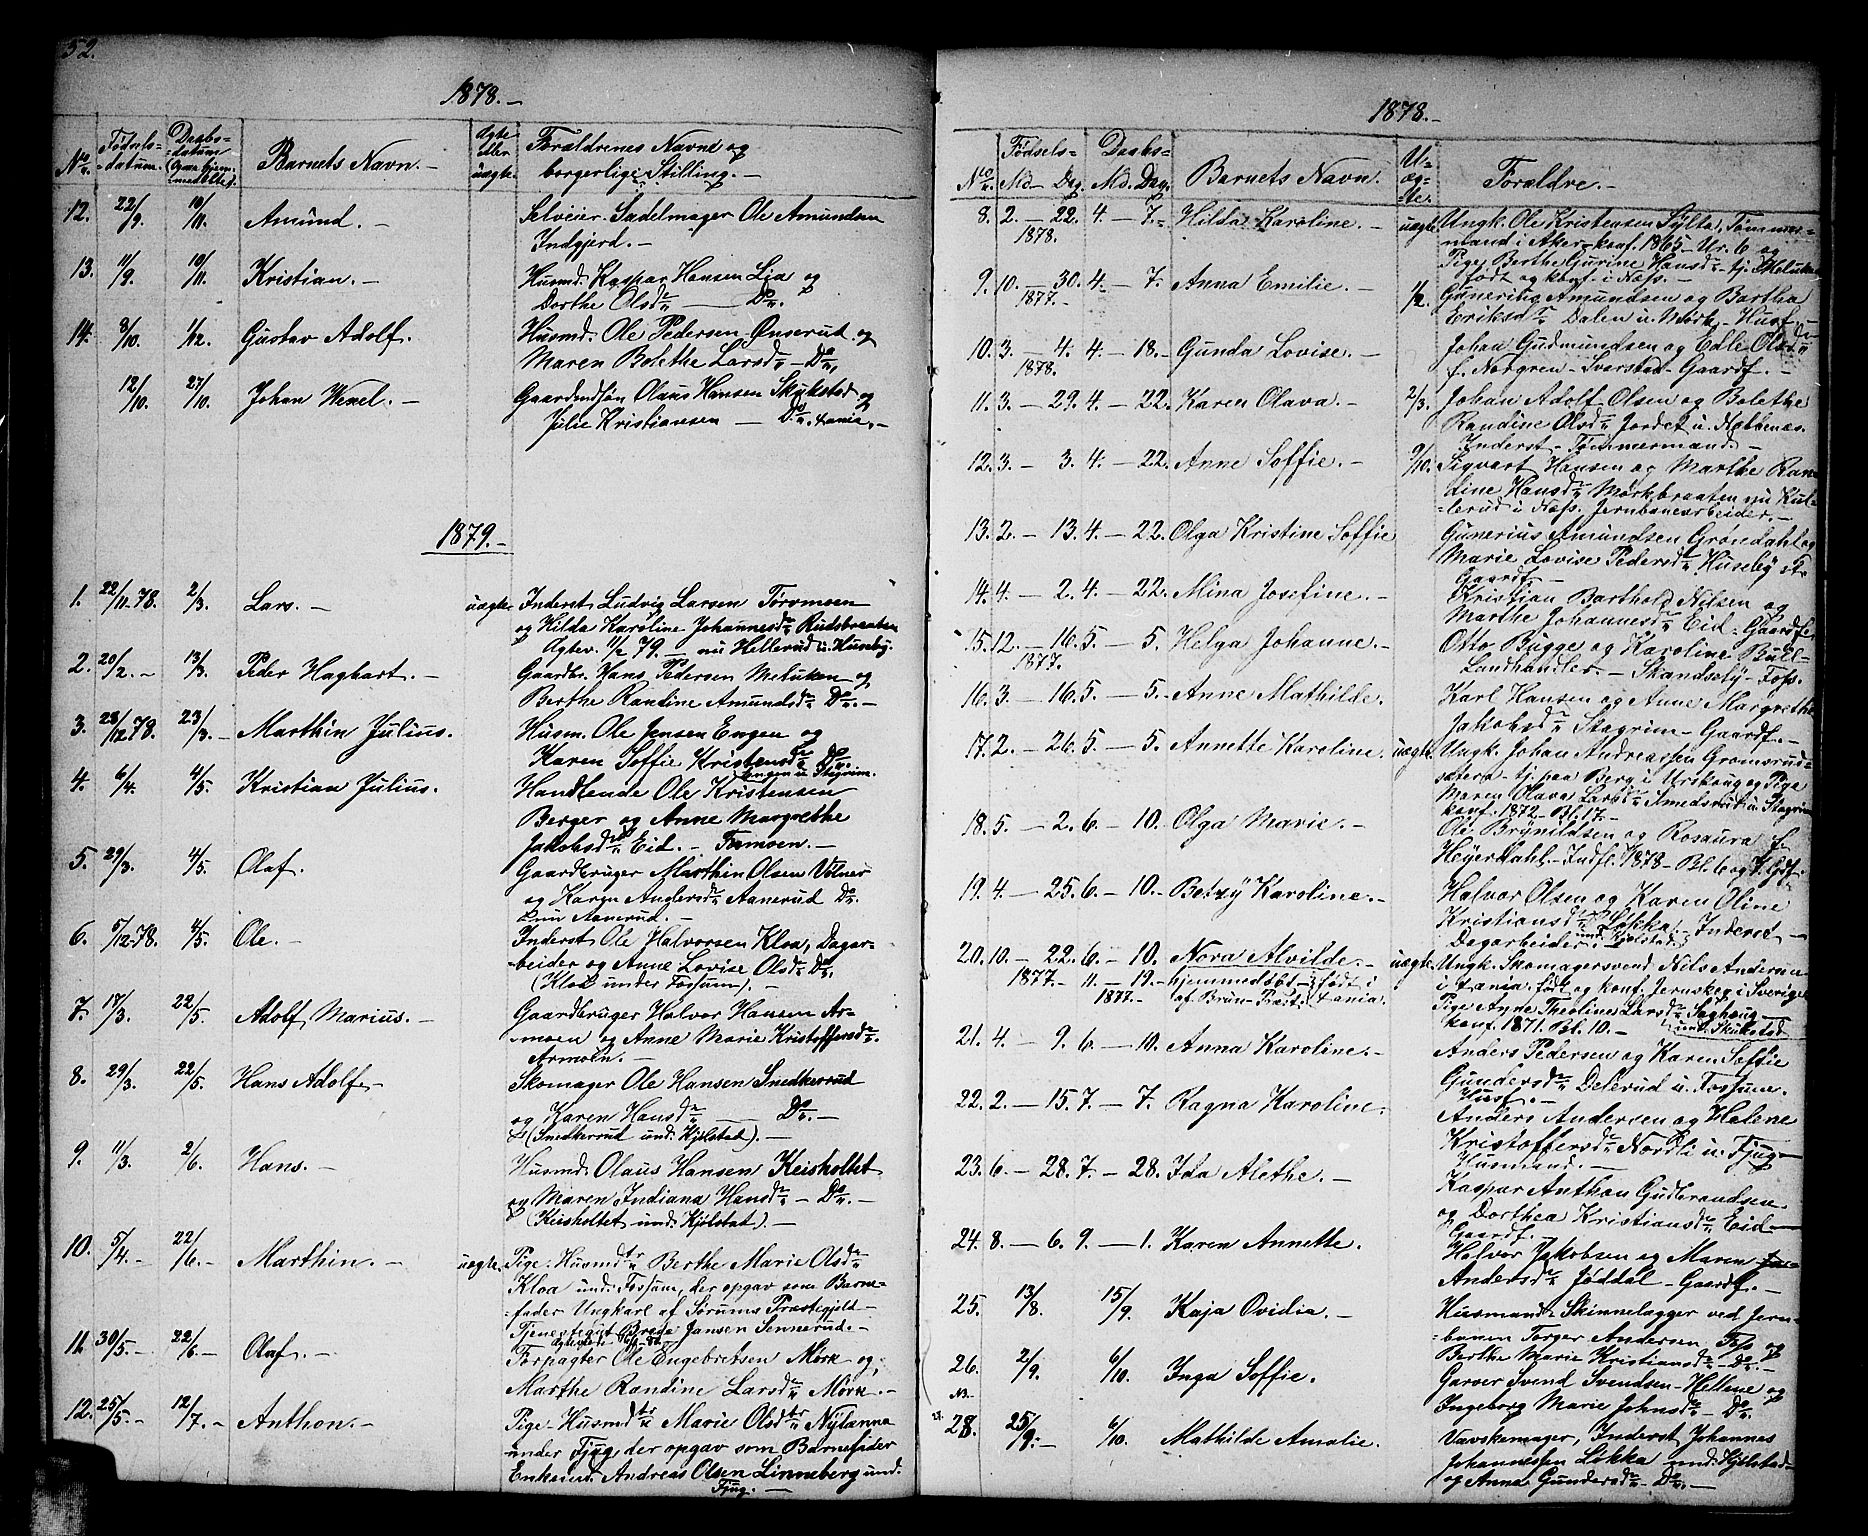 52.
1878.-
No. Fødsels-datum. Daabs-datum (Opas hjem-medølt.) Barnets Navn.- Ægte eller uægte. Forældrenes Navne og borgerlige Stilling.-
12. 22/9. 10/11. Amund.- Selveier. Sadelmager Ole Amundsen
Indgjerd.-
13. 11/9. 10/11. Kristian.- Husmd. Kaspar Hansen Lia og
Dorthe Olsdr - Do.
14. 8/10. 1/12. Gustav Adolf. Husmd. Ole Pedersen Onserud og
Maren Bolethe Larsdr - Do.
12/10. 27/10. Johan Wexel.- Gaardmdsøn Olaus Hansen Skukstad og
Julie Kristiansen - Do.
1879.-
1. 22/11-78. 2/3. Lars.- uægte. Inderst. Ludvig Larsen
og Hilda Karoline Johannesdr Rudsbraaten
Ægtev. 11/2 79. - nu Hellerud u. Huseby.
2. 20/2.- 13/3. Peder Hagbart.- Gaardbr. Hans Pedersen Melnken og
Berthe Randine Amundsdr Do.-
3. 28/12 78. 23/3.- Marthin Julius. Husm. Ole Jensen Engen og
Karen Soffie Kristensdr Do.-
Engen u. Stegrim.
4. 6/4. 4/5. Kristian Julius. Handlende Ole Kristensen
Berger og Anne Margrethe
Jakobsdr Eid.- Famoen.-
5. 29/3. 4/5. Olaf. Gaardbruger Marthin Olsen Volner
og Karen Andersdr Aanerud Do.
Aanerud.-
6. 5/12-78. 4/5. Ole.- Inderst Ole Halvorsen Kloa, Dagar-
beider og Anne Lovise Olsdr Do.
(Kloa under Fossum).-
7. 17/3. 22/5. Adolf Marius.- Gaardbruger Halvor Hansen Ar-
moen og Anne Marie Kristoffersdr.
Armoen.-
8. 29/3. 22/5. Hans Adolf.- Skomager Ole Hansen Snedkerrud
og Karen Hansdr - Do.-
(Snedkerrud und. Kjølstad).-
9. 11/3. 2/6. Hans.- Husmd. Olaus Hansen Keisholtet
og Maren Indiana Hansdr - Do.-
(Keisholtet und. Kjølstad).-
10. 5/4.- 22/6.- Marthin.- uægte. Pige. Husmdtr Berthe Marie Olsdr
Kloa und. Fossum, der opgav som Barne-
fader Ungkarl af Sørums Præstegjeld
Tjenestegut Brede Jansen Sennerud.-
11. 30/5.- 22/6.- Olaf.- Forpagter Ole Engebretsen Mørk og
Marthe Randine Larsdr Mørk.-
12. 25/5.- 12/7.- Anthon.- Pige - Husmdtr Marie Olsdr Nylænna
under Fjug, der opgav som Barnefader
Enkemd. Andreas Olsen Linneberg und.
Fjug.-
1878.-
No. Fødsels- Md - Dag. Daabs- Md. Dag. Barnets Navn. U-æg-te. Forældre.-
8. 2. - 22. 4. - 7.- Hilda Karoline.- uægte. Ungk. Ole Kristensen Sylta, Tømmer-
1878. mand i Aker - konf. 1865 - Nr. 6 og
Pige Berthe Gurine Hansdr - tj. Melnken
født og konf. i Næs.-
9. 10. - 30. 4. - 7. Anna Emilie.- 1/2. Gunerius Amundsen og Barthea
1877.- Eriksdr Dalen u. Mørk - Husf.
10. 3. - 4. 4. - 18.- Gunda Lovise.- Johan Gudmundsen og Edle Olsdr
1878. f. Norgren - Iverstad - Gaardf.-
11. 3. - 29. 4. - 22. Karen Olava.- 2/3. Johan Adolf Olsen og Bolethe
Randine Olsdr Jordet u. Hebbenæs.
Inderst - Tømmermand.-
12. 3. - 3. 4. - 22. Anne Soffie.- 9/10. Sigvart Hansen og Marthe Ran-
dine Hansdr Mørkbraaten nu Kul-
lerud i Næs. Jernbanearbeider.-
13. 2. - 13. 4. - 22. Olga Kristine Soffie Gunerius Amundsen Grøndahl og
Marie Lovise Pedersdr Huseby
Gaardf.-
14. 4. - 2. 4. - 22. Mina Josefine.- Kristian Barthold Nilsen og
Marthe Johannesdr Eid - Gaardf.
15. 12. - 16. 5. - 5. Helga Johanne.- Otto Bugge og Karoline Bull-
1877. Landhandler.- Skandseby - Foss.
16. 3. - 16. 5. - 5. Anne Mathilde. Karl Hansen og Anne Margrethe
Jakobsdr Stegrim - Gaardf.-
17. 2. - 26. 5. - 5. Annette Karoline. uægte. Ungk. Johan Andreassen Gromsrud-
sætera - tj. paa Berg i Urskoug og Pige
Maren Olava Larsdr Smedsrud u. Stegrim
konf. 1872 - Bl. 17.-
18. 5. - 2. 6. - 10. Olga Marie.- Ole Brynildsen og Rosaura f.
Heyerdahl.- Indfl. 1878 - Bl. 6 og 7.
19. 4. - 25. 6. - 10. Betzy Karoline.- Halvor Olsen og Karen Oline
Kristiansdr Løkka.- Inderst -
Dagarbeider und. Kjølstad.
20. 10. - 22. 6. - 10. Nora Alvilde.- uægte. Ungk. Skomagersvend Nils Andersen
1877. - 11. - 19.- hjemmedøbt - født i i Fænia. født og konf. Jernskog i Sverige.
1877.- af Brun - Præst i Fænia. Pige Anne Theoline Larsdr Saghaug
konf. 1871. Bl. 10.- und. Skukstad
21. 4. - 9. 6. - 10. Anna Karoline.- Anders Pedersen og Karen Soffie
Gundersdr Delerud u. Fossum.
Husf.-
22. 2. - 15. 7. - 7. Ragna Karoline. Anders Andersen og Helene
Kristoffersdr Nordli u. Fjug -
Husmand.-
23. 6. - 28. 7. - 28. Ida Alethe.- Kaspar Anthon Gudbrandsen
og Dorthea Kristiansdr Eid -
Gaardf.
24. 8. - 6. 9. - 1. Karen Annette. Halvor Jakobsen og Maren
Andersdr Jøddal - Gaardf.-
25. 13/8. 15/9. Kaja Ovidia.- Husmand - Skinnelægger ved Jern-
banen Torger Andersen, Foss og
Berthe Marie Kristiansdr - Do.-
26. 2/9. 6/10. Inga Soffie. Garver Svend Svendsen - Hellene og
Ingeborg Marie Johnsdr - Do.
28. 25/9.- 6/10. Mathilde Amalie. Vævskemager, Inderst Johannes
Johannessen Løkka und. Kjølstad -
og Anna Gundersdr - Do.-